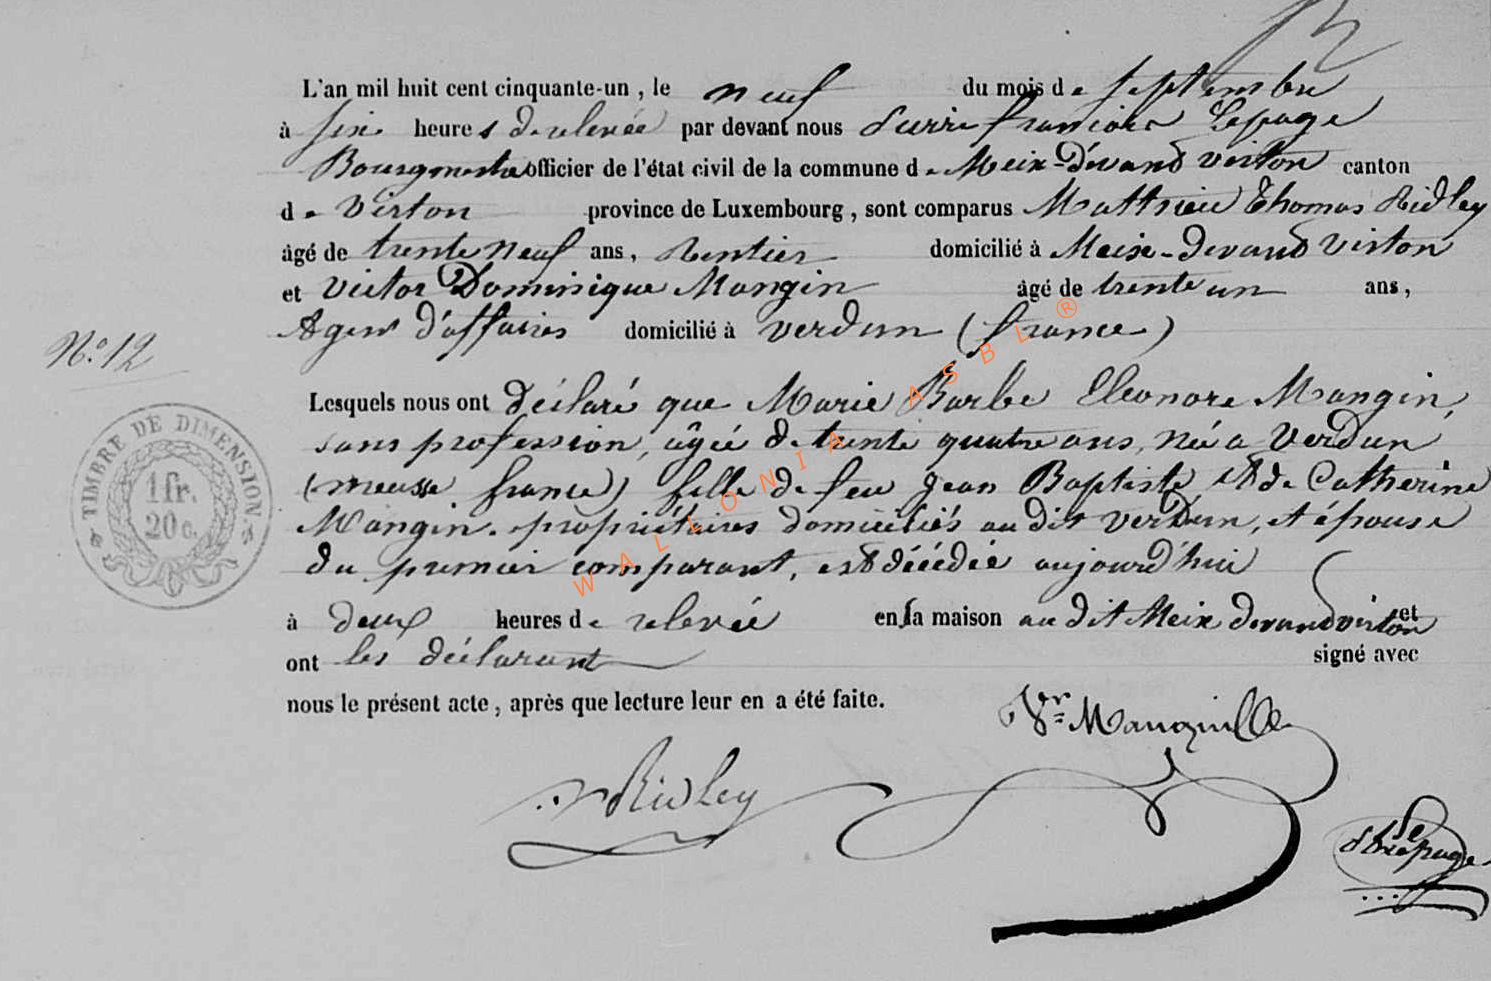 L'an mil huit cent cinquante-un, le neuf du mois de septembre
à six heures de relevée par devant nous Pierre françois Lepage
Bourgmestre officier de l'état civil de la commune de Meix-Devand Virton canton
de Virton province de Luxembourg, sont comparus Matthieu Thomas Ridley
âgé de trente neuf ans, Rentier domicilié à Meix-devand Virton
et Victor Dominique Mangin âgé de trente un ans,
Agent d'affaires domicilié à Verdun (france)
N.o 12
Lesquels nous ont déclaré que Marie Barbe Eleonore Mangin,
sans profession, âgée de trente quatre ans, née a Verdun
(meusse france) fille de feu Jean Baptiste et de Catherine
Mangin. propriétaires domiciliés au dit Verdun, et épouse
du premier comparant, est décédée aujourd'hui
à deux heures de relevée en sa maison au dit Meix devand virton et
ont les déclarant signé avec
nous le présent acte, après que lecture leur en a été faite.
TIMBRE DE DIMENSION
1 fr.
20 c.
Vr Mangin
Ridley
Lepage
WALLONIA ASBL ®